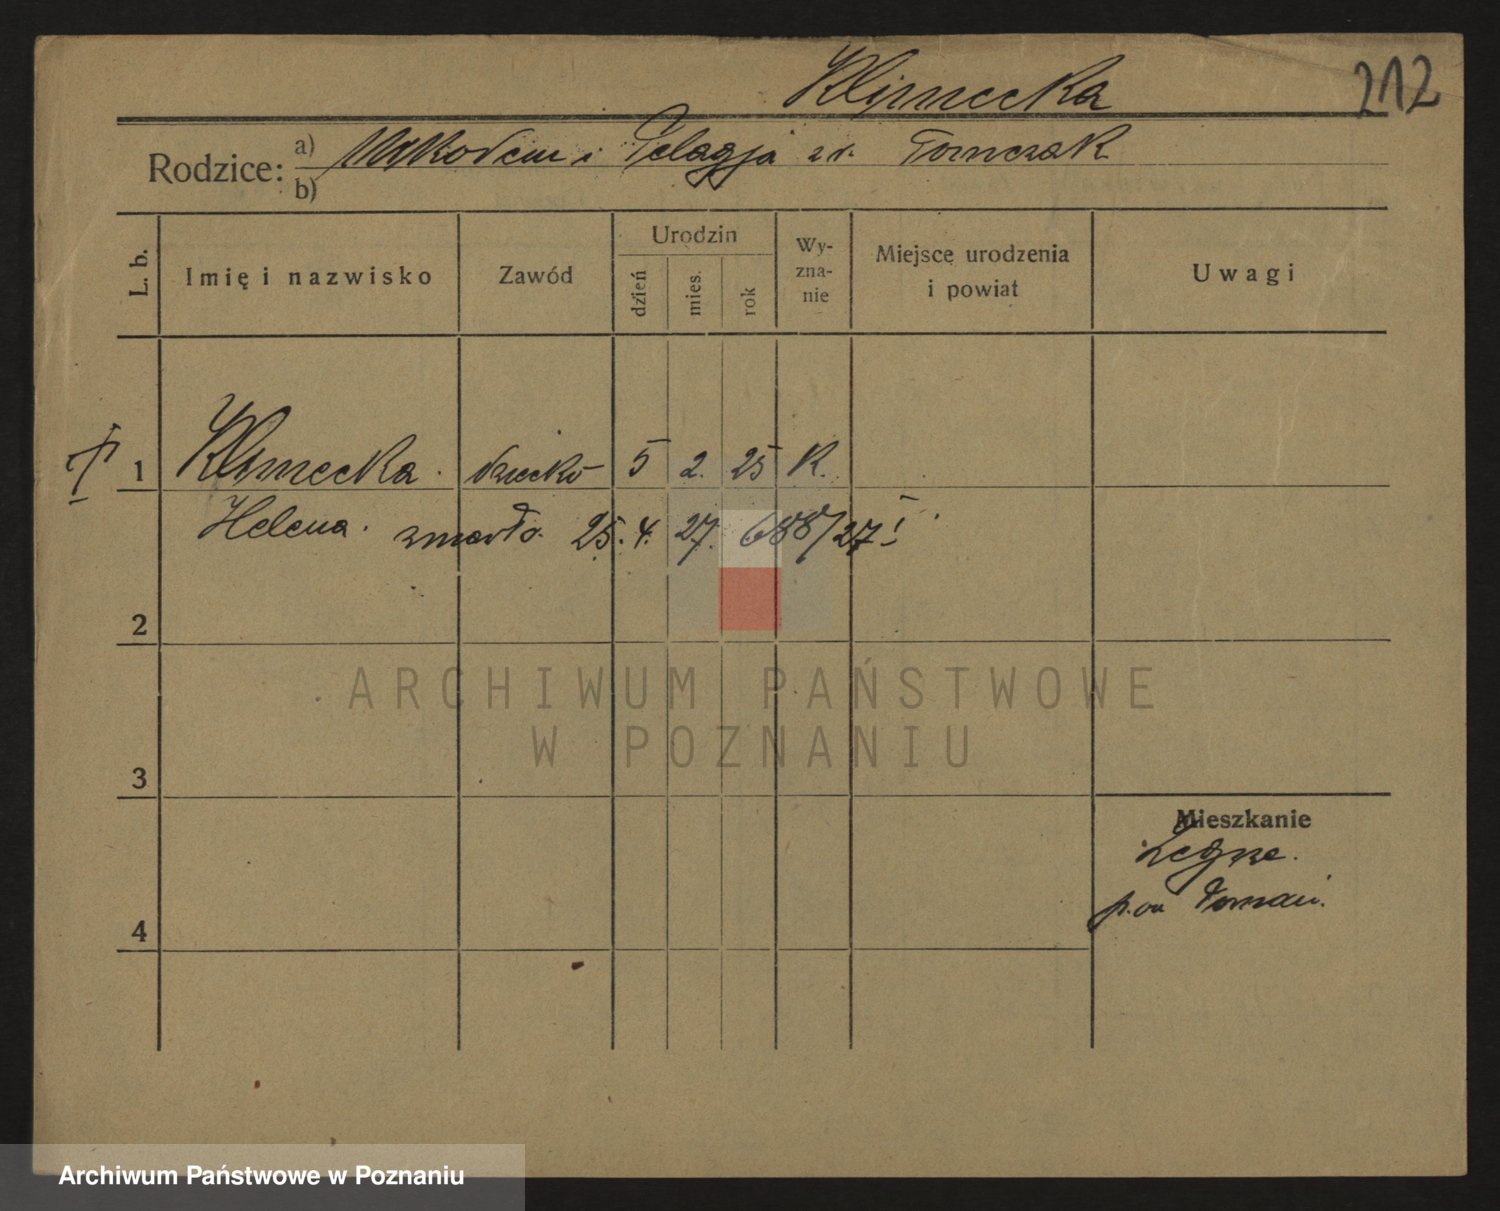 Klimecka 212
Rodzice: a) Nikodem i Pelagja z d. Tomczak
b)
L. b. Imię i nazwisko Zawód Urodzin dzień mies. rok Wy-zna-nie Miejsce urodzenia i powiat Uwagi
1 Klimecka. dziecko 5 2. 25 K.
Helena. zmarła 25. 4. 27. 688/27 I
2
ARCHIWUM PAŃSTWOWE
W POZNANIU
3
Mieszkanie
Żegrze.
pow Poznań.
4
Archiwum Państwowe w Poznaniu